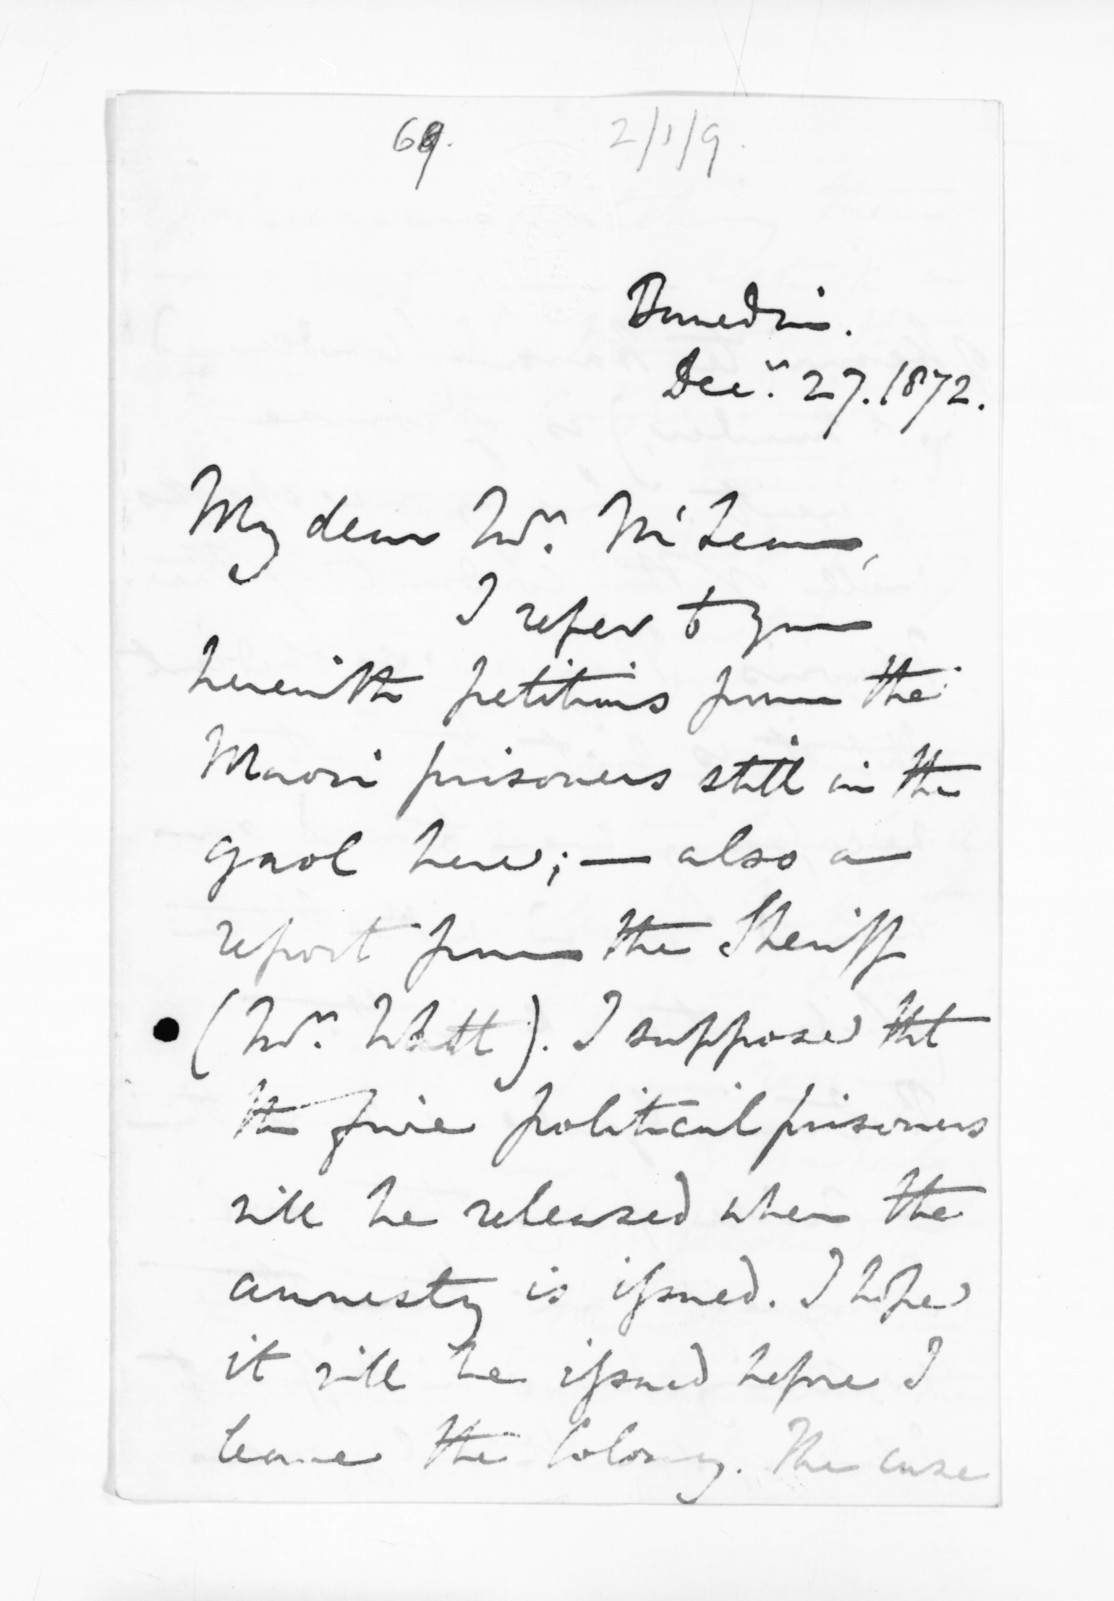 69. 2/1/9.
Dunedin.
Decr. 27. 1872.
My dear Mr. McLean,
I refer to you
herewith petitions from the
Maori prisoners still in the
gaol here; — also a
report from the Sheriff
(Mr. Watt). I suppose tht
the five political prisoners
will be released when the
amnesty is issued. I hope
it will be issued before I
leave the Colony. The case